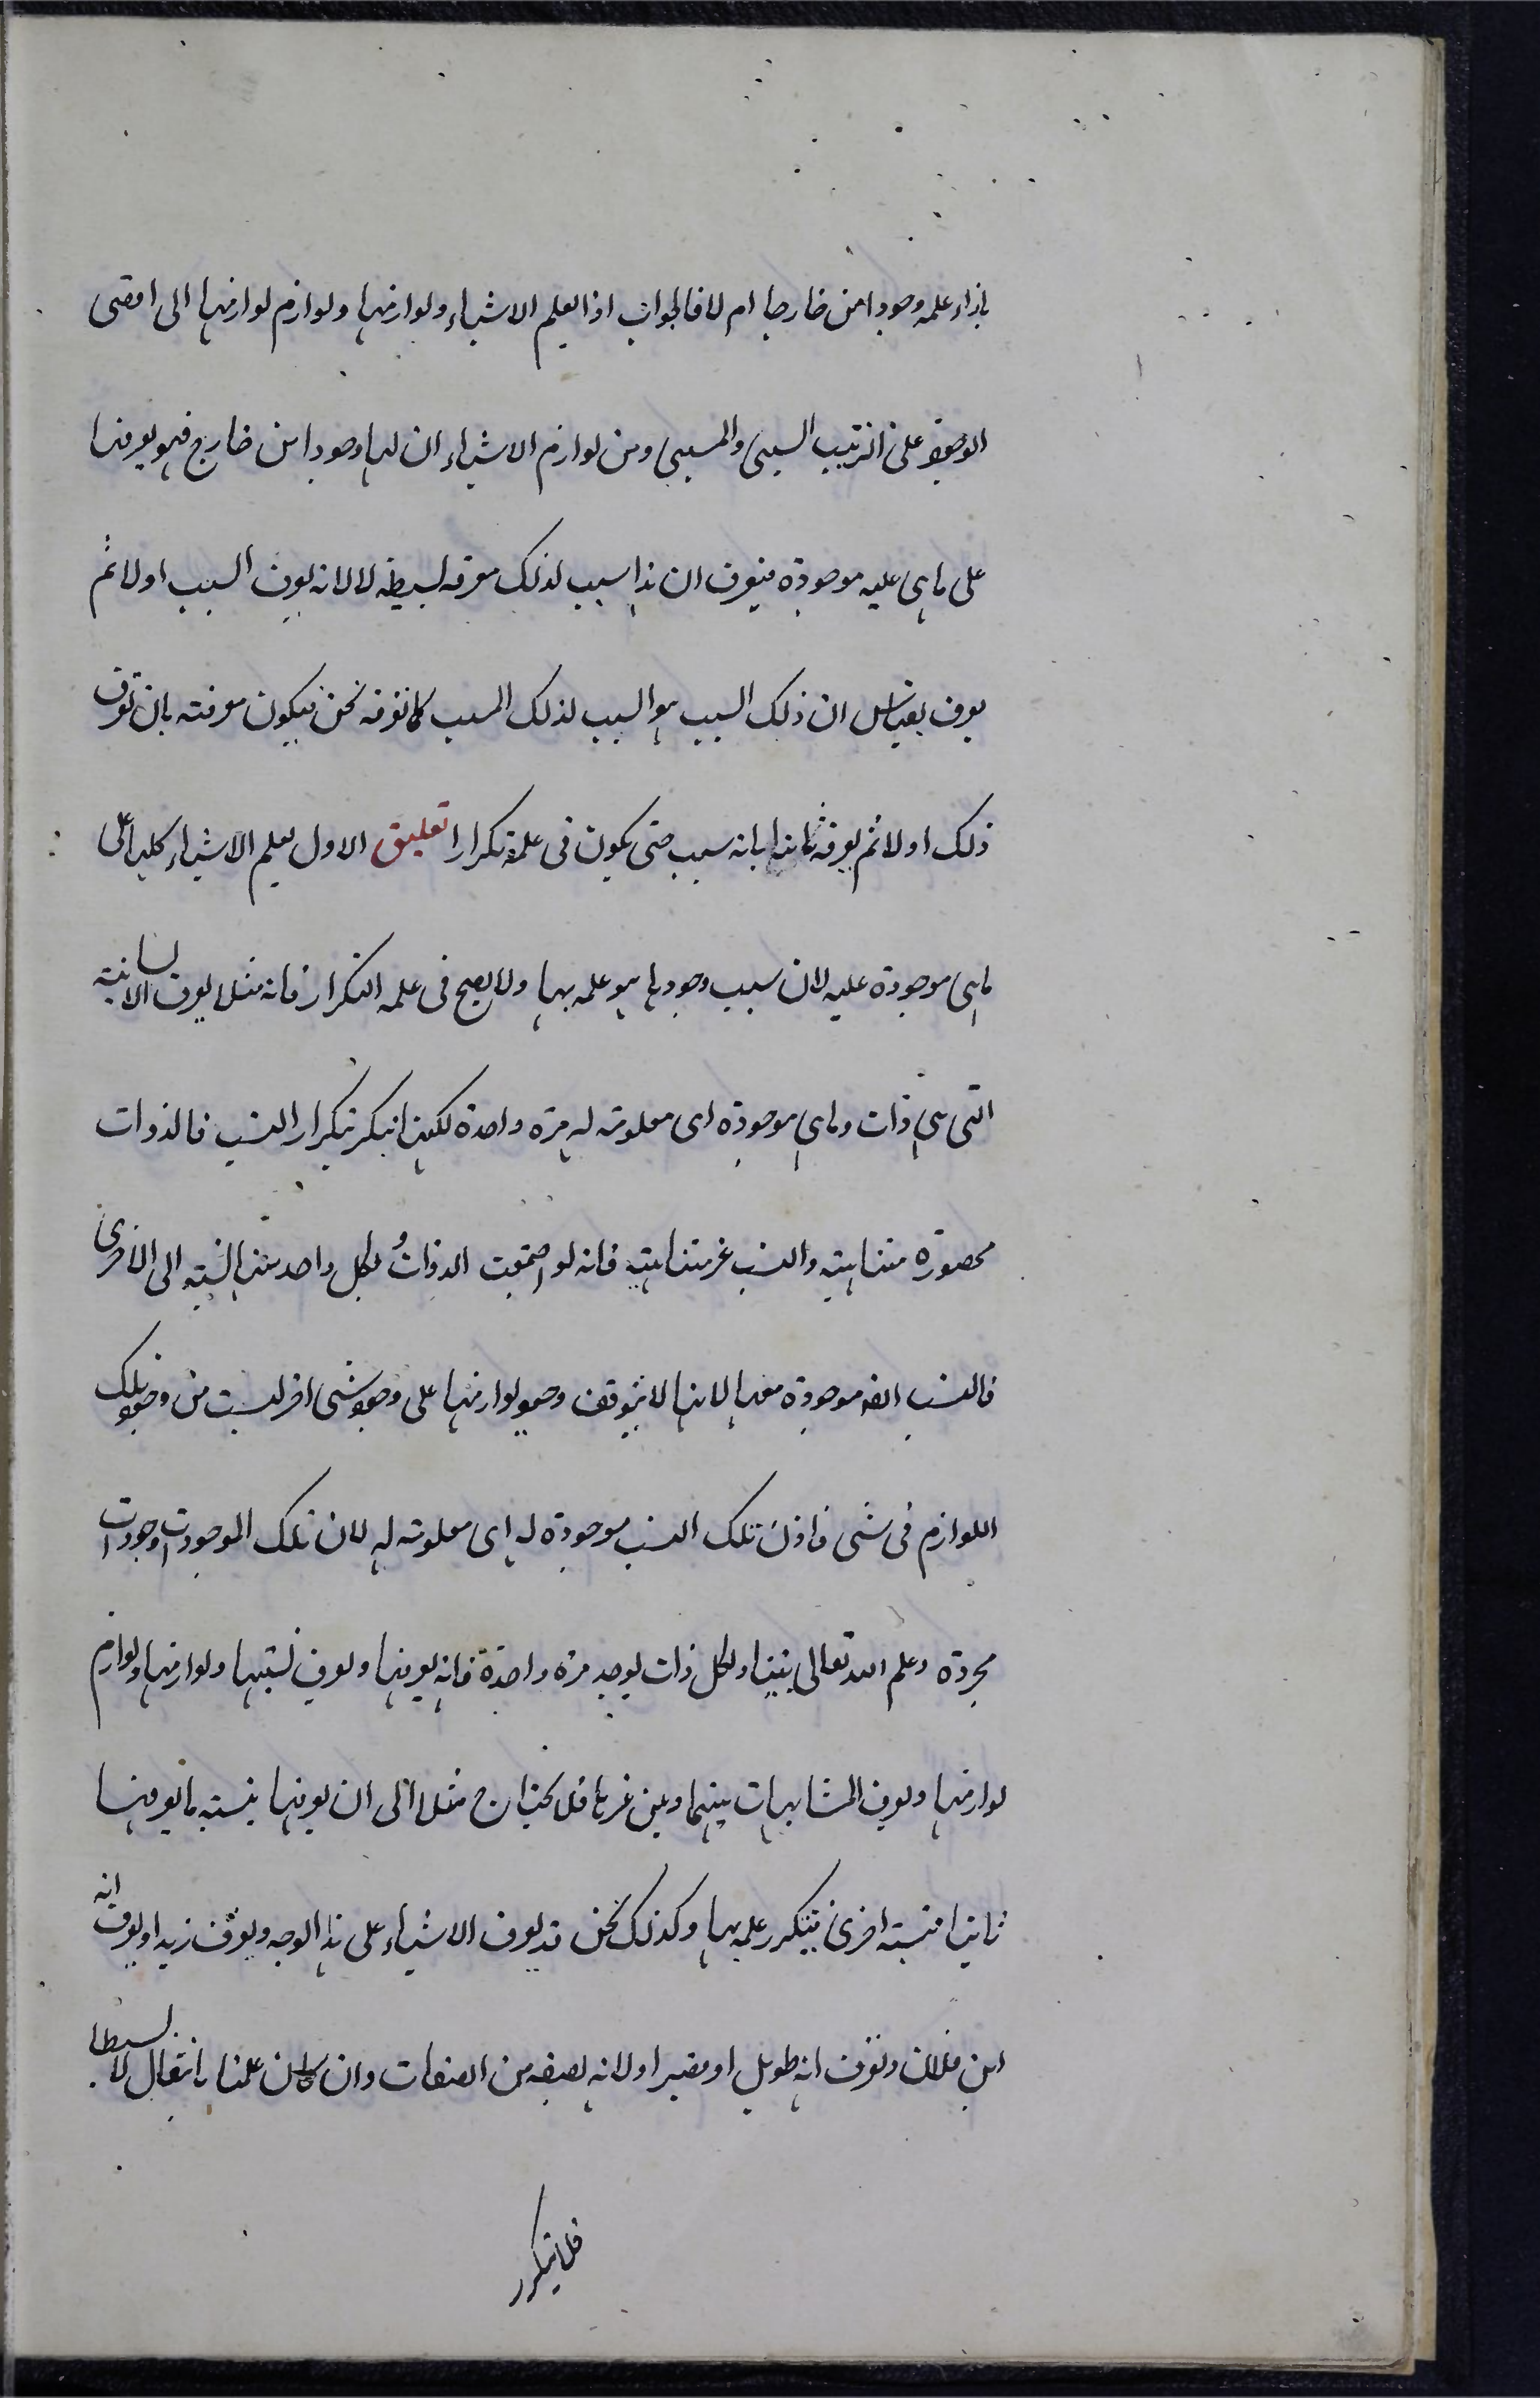 بازاء علمه وجودا من خارج ام لا فالجواب اذا يعلم الاشياء ولوازمها ولوازم لوازمها الى اقصى
الوجود على الترتيب السببى والمسببى ومن لوازم الاشياء ان لها وجودا من خارج فهو يعرفها
على ما هى عليه موجودة فيعرف ان هذا سبب لذلك معرفه بسيطه لا لانه يعرف السبب اولا ثم
يعرف بقياس ان ذلك السبب هو السبب لذلك المسبب كما نعرفه نحن فيكون معرفته بان تعرف
ذلك اولا ثم يعرف ثانيا بانه سبب حتى يكون فى علمه تكرار تعليق الاول يعلم الاشياء كليها على
ما هى موجودة عليه لان سبب وجودها هو علمه بها ولا يصح فى علمه التكرار فانه مثلا يعرف الانسانية
التى هى ذات وماهى موجودة اى معلومة له مرة واحدة لكنها تتكرر بتكرار النسب فالذوات
محصورة متناهية والنسب غير متناهية فانه لو اجتمعت الذوات ولكل واحد منها نسبة الى الاخرى
فالنسب ايضا موجودة معها لانها لا يتوقف وجود لوازمها على وجود شى اخر ليست من وجود تلك
اللوازم فى شى فاذن تلك النسب موجودة له اى معلومة له لان تلك الموجودات وجودات
مجردة وعلم الله تعالى بها ولكل ذات يوجد مرة واحدة فانه يعرفها ويعرف نسبتها ولوازمها ولوازم
لوازمها ويعرف المشابهات بينهما وبين غيرها فلا يحتاج مثلا الى ان يعرفها بنسبة ما يعرفها
ثانيا بنسبة اخرى فيتكرر علمه بها وكذلك نحن قد يعرف الاشياء على هذا الوجه ويعرف زيدا ويعرف انه
ابن فلان ونعرف انه طويل او قصير اولا انه بصفة من الصفات وان كان علمنا بانتقال لا بسيطا
فلا يتكرر